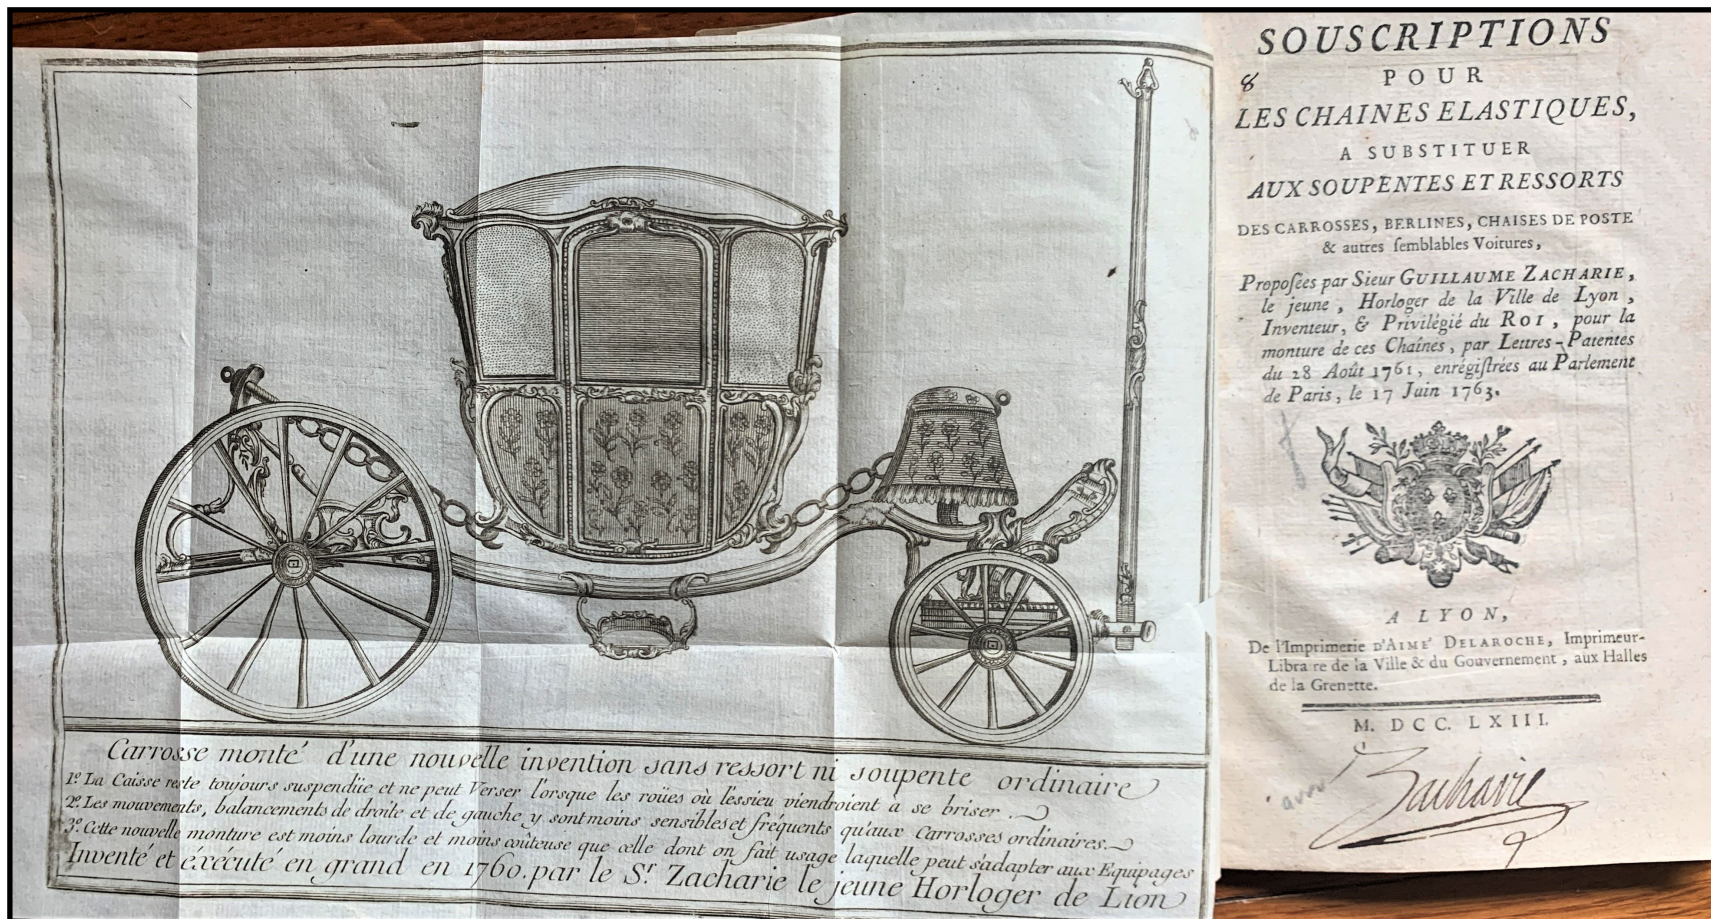 Carrosse monté d'une nouvelle invention sans ressort ni soupente ordinaire
1.º La Caisse reste toujours suspendüe et ne peut Verser lorsque les roües où l'essieu viendroient à se briser.
2.º Les mouvements, balancements de droite et de gauche y sont moins sensibles et fréquents qu'aux Carrosses ordinaires.
3.º Cette nouvelle monture est moins lourde et moins coûteuse que celle dont on fait usage laquelle peut s'adapter aux Equipages
Inventé et éxécuté en grand en 1760. par le S.r Zacharie le jeune Horloger de Lion
SOUSCRIPTIONS
8
POUR
LES CHAINES ELASTIQUES,
A SUBSTITUER
AUX SOUPENTES ET RESSORTS
DES CARROSSES, BERLINES, CHAISES DE POSTE
& autres ſemblables Voitures,
Propoſées par Sieur GUILLAUME ZACHARIE,
le jeune, Horloger de la Ville de Lyon,
Inventeur, & Privilégié du ROI, pour la
monture de ces Chaînes, par Lettres-Patentes
du 28 Août 1761, enrégiſtrées au Parlement
de Paris, le 17 Juin 1763.
A LYON,
De l'Imprimerie D'AIMÉ DELAROCHE, Imprimeur-
Libraire de la Ville & du Gouvernement, aux Halles
de la Grenette.
M. DCC. LXIII.
Zacharie